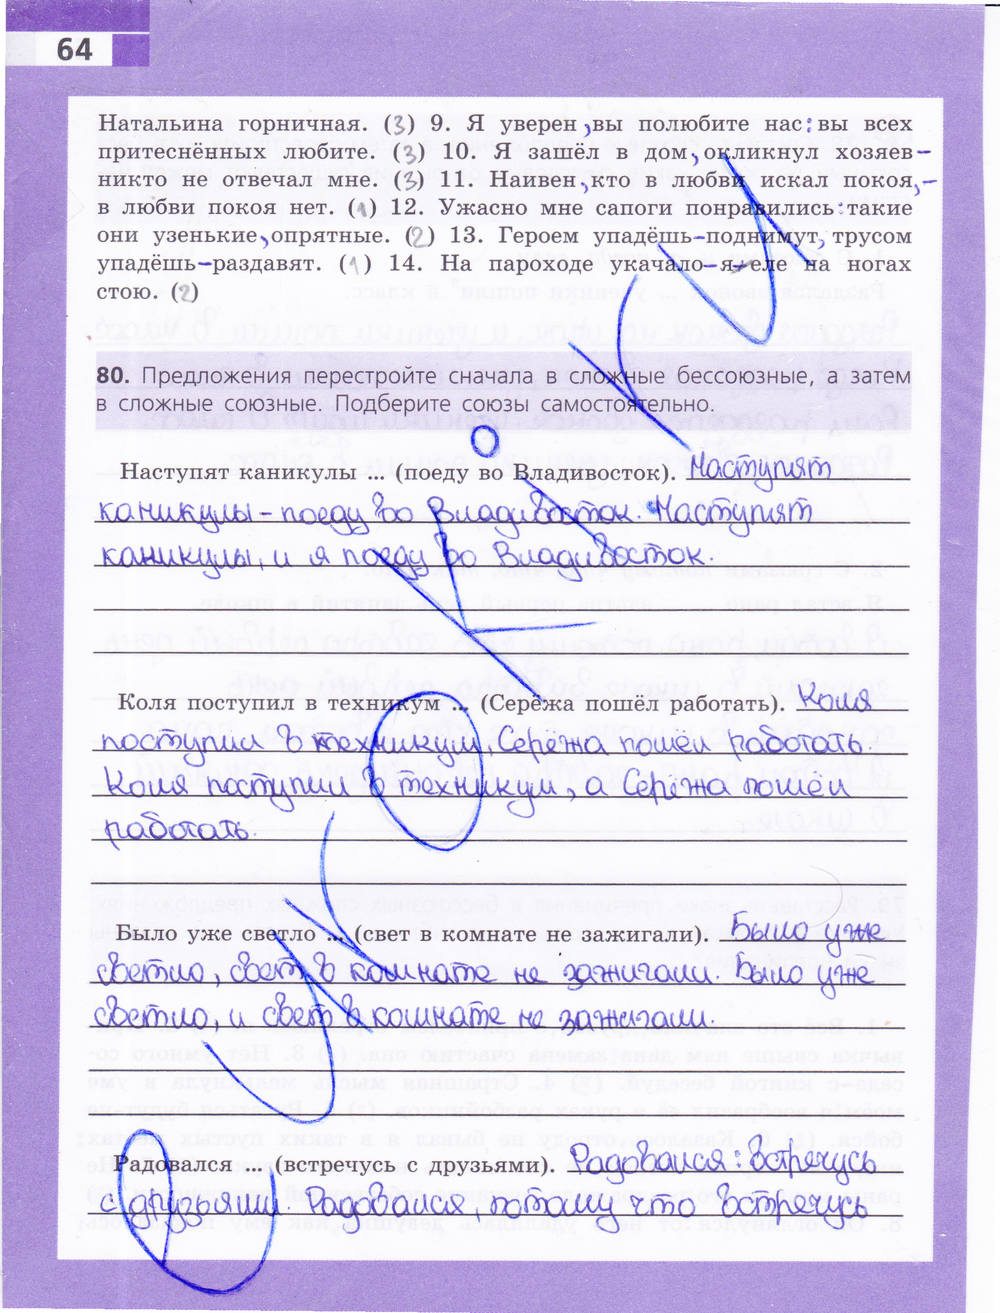 64
Натальина горничная. (3) 9. Я уверен, вы полюбите нас: вы всех
притеснённых любите. (3) 10. Я зашёл в дом, окликнул хозяев –
никто не отвечал мне. (3) 11. Наивен, кто в любви искал покоя, –
в любви покоя нет. (1) 12. Ужасно мне сапоги понравились: такие
они узенькие, опрятные. (2) 13. Героем упадёшь – поднимут, трусом
упадёшь – раздавят. (1) 14. На пароходе укачало – я еле на ногах
стою. (2)
80. Предложения перестройте сначала в сложные бессоюзные, а затем
в сложные союзные. Подберите союзы самостоятельно.
Наступят каникулы ... (поеду во Владивосток). Наступят
каникулы – поеду во Владивосток. Наступят
каникулы, и я поеду во Владивосток.
Коля поступил в техникум ... (Серёжа пошёл работать). Коля
поступил в техникум, Серёжа пошёл работать.
Коля поступил в техникум, а Серёжа пошёл
работать.
Было уже светло ... (свет в комнате не зажигали). Было уже
светло, свет в комнате не зажигали. Было уже
светло, и свет в комнате не зажигали.
Радовался ... (встречусь с друзьями). Радовался: встречусь
с друзьями. Радовался, потому что встречусь